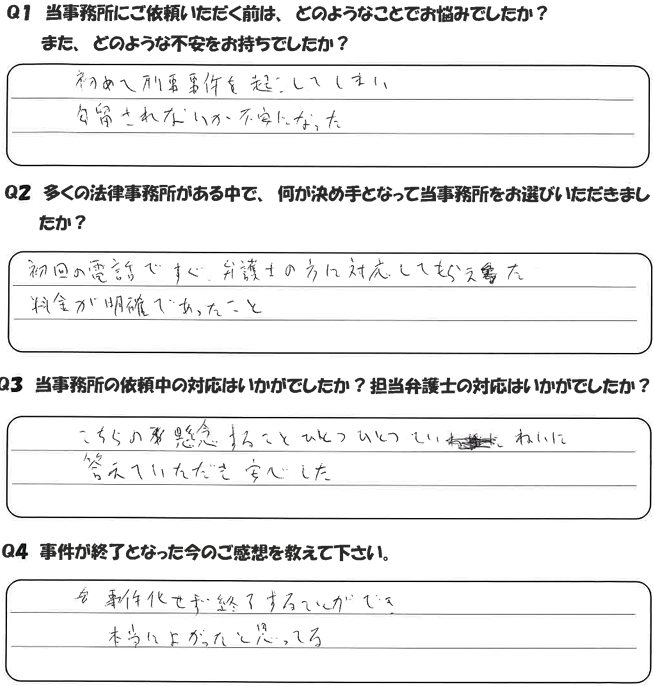 Q1 当事務所にご依頼いただく前は、どのようなことでお悩みでしたか？
また、どのような不安をお持ちでしたか？
初めて刑事事件を起こしてしまい
勾留されないか不安になった
Q2 多くの法律事務所がある中で、何が決め手となって当事務所をお選びいただきまし
たか？
初回の電話ですぐ、弁護士の方に対応してもらえた
料金が明確であったこと
Q3 当事務所の依頼中の対応はいかがでしたか？担当弁護士の対応はいかがでしたか？
こちらの懸念することひとつひとつていねいに
答えていただき安心した
Q4 事件が終了となった今のご感想を教えて下さい。
事件化せず終了することができ
本当によかったと思ってる